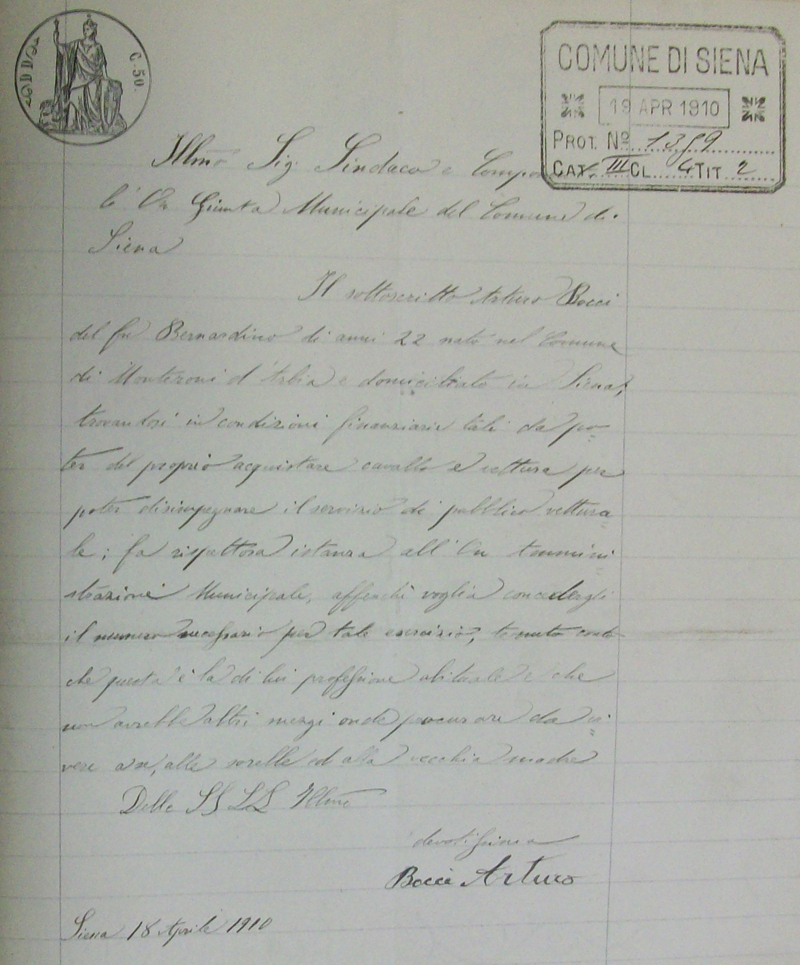 C. 50.
COMUNE DI SIENA
19 APR 1910
PROT. Nº 1359
CAT. III CL. 4 TIT. 2
Illmo Sig. Sindaco e Compo
la On Giunta Municipale del Comune di
Siena
Il sottoscritto Arturo Bocci
del fu Bernardino di anni 22 nato nel Comune
di Monteroni d'Arbia e domiciliato in Siena,
trovandosi in condizioni finanziarie tali da po-
ter del proprio acquistare cavallo e vettura per
poter disimpegnare il servizio di pubblico vettura-
le; fa rispettosa istanza all'On Ammini-
strazione Municipale, affinchè voglia concedergli
il numero necessario per tale esercizio, tenuto conto
che questa è la di lui professione abituale e che
non avrebbe altri mezzi onde procurare da vi-
vere a se, alle sorelle ed alla vecchia madre
Delle SS LL Illme
devotissimo
Bocci Arturo
Siena 18 Aprile 1910